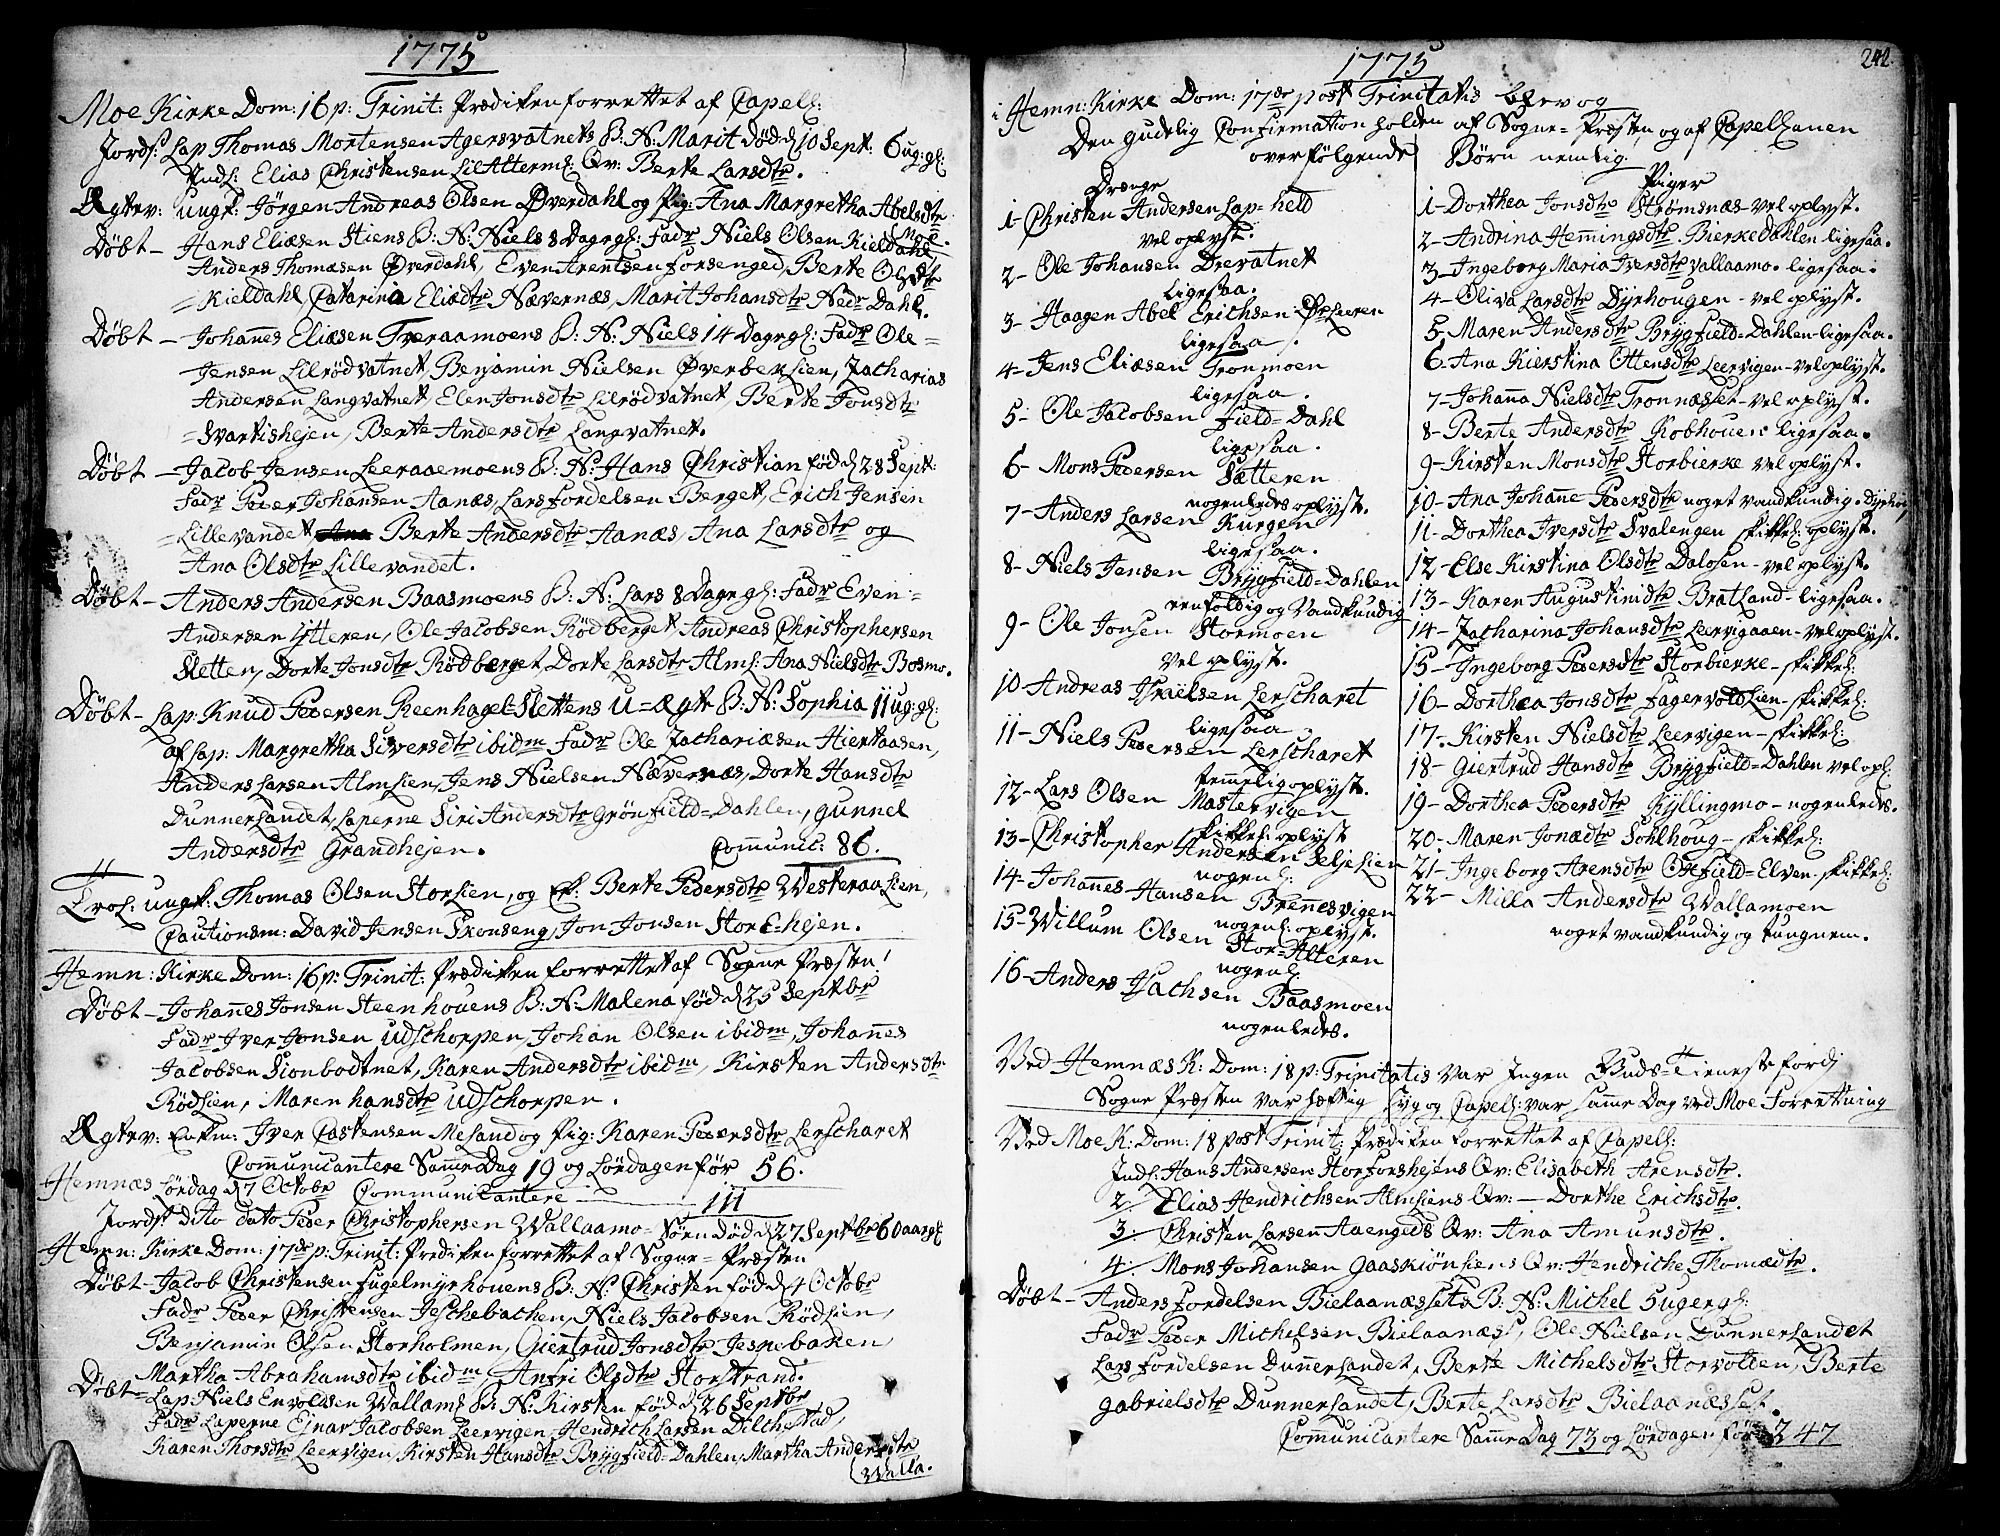 1775
Moe Kirke Dom: 16 p: Trinit: Prædiken forrettet af Capell:
Jords: Lap Thomas Mortensen Agersvatnets B: N: Marit død d 10 Sept: 6 ug: gl:
Inds: Elias Christensen Lil Alterms: Qv: Berte Larsdtr.
Ægtev: ungk: Jörgen Andreas Olsen Øverdahl og Pig: Ana Margretha Abelsdtr
Moe.
Döbt - Hans Eliæsen Stiens B: N: Niels 8 Dage gl: Fadr Niels Olsen Kieldahl,
Anders Thomæsen Øverdahl, Even Arentsen Forsenged, Berte Olsdtr
Kieldahl Catarina Eliædtr Nævernæs, Marit Johansdtr Nedr Dahl.
Döbt - Johanes Eliæsen Tveraamoens B: N: Niels 14 Dage gl: Fadr Ole
Jensen Lilrödvatnet, Benjamin Nielsen Øverbeksien, Zacharias
Andersen Langvatnet, Elen Jonsdtr Lilrödvatnet, Berte Jonsdtr
Svartishejen, Berte Andersdtr Langvatnet.
Döbt - Jacob Jensen Leeraaemoens B: N: Hans Christian föd d 28 Sept:
Fadr Peder Johansen Aanæs, Lars Fordelsen Berget, Erich Jensen
Lillevandet Ana Berte Andersdtr Aanæs, Ana Larsdtr og
Ana Olsdtr Lillevandet.
Döbt - Anders Andersen Baasmoens B: N: Lars 8 Dage gl: Fadr Even
Andersen Ytteren, Ole Jacobsen Rödberget, Andreas Christophersen
Sletten, Dorte Jonsdtr Rödberget, Dorte Larsdtr Alms: Ana Nielsdtr Bosmo.
Döbt - Lap: Knud Pedersen Reenhagel-Slettens U=ægte B: N: Sophia 11 ug: gl:
af Lap: Margretha Siversdtr ibidm Fadr Ole Zachariæsen Hiertaasen,
Anders Larsen Almlien, Jens Nielsen Nævernæs, Dorte Hansdtr
Dunnerlandet, Laperne Siri Andersdtr Grönfield=Dahlen, Gunnel
Andersdtr Grandhejen. Communic: 86.
Trol: ungk: Thomas Olsen Storlien, og Ek: Berte Pedersdtr Westeraalien,
Cautionsm: David Jensen Skonseng, Jon Jonsen Stor E=hejen.
Hemn: Kirke Dom: 16 p: Trinit: Prædiken forrettet af Sogne Præsten!
Döbt - Johanes Jonsen Steenhouens B: N: Malena föd d 25 Septbr
Fadr Iver Jonsen Udschorpen, Johan Olsen ibidm, Johanes
Jacobsen Sionbodtnet, Karen Andersdtr ibidm, Kirsten Andersdtr
Rödlien, Maren Hansdtr Udschorpen.
Ægtev: Enkm: Iver Castensen Mesand og Pig: Karen Pedersdtr Lerscharet
Communicantere Samme Dag 19 og Lördagen för 56.
Hemnæs Lördag d 7 Octobr Communicantere 111
Jords: dito dato Peder Christophersen Wallaamo - Sören död d 27 Septbr 60 aar gl
Hemn: Kirke Dom: 17de p: Trinit: Prediken forrettet af Sogne=Præsten
Döbt - Jacob Christensen Fugelmyrhouens B: N: Christen föd d 4 Octobr
Fadr Peder Christensen Jeschebachen, Niels Jacobsen Rödlien,
Benjamin Olsen Storholmen, Giertrud Jonsdtr Jespebaken
Martha Abrahamsdtr ibidm Anfri Olsdtr Storstrand.
Döbt - Lap: Niels Envoldsen Wallams: B: N: Kirsten föd d 26 Septbr
Fadr Laperne Ejnar Jacobsen Leervigen, Hendrich Larsen Dilchestad,
Karen Thorsdtr Leervigen, Kirsten Hansdtr Brygfield=Dahlen, Martha Andersdtr
Walla.
1775
242
i Hemn: Kirke Dom: 17de post Trinitatis blev og
Den Gudelig Confirmation holden af Sogne=Præsten, og af Capellanen
over fölgende Börn nemlig.
Drænge
1 - Christen Andersen Lap=held
vel oplyst.
2 - Ole Johansen Drevatnet
ligesaa.
3 - Haagen Abel Erichsen Ør Leeren
ligesaa.
4 - Jens Eliæsen Tronmoen
ligesaa.
5 - Ole Jacobsen Field=Dahl
ligesaa.
6 - Mons Pedersen Sætteren
nogenledes oplyst.
7 - Anders Larsen Kurgen
ligesaa.
8 - Niels Jensen Brygfield=Dahlen
eenfoldig og Vandkundig
9 - Ole Jonsen Stormoen
vel oplyst.
10 - Andreas Israelsen Lerscharet
ligesaa
11 - Niels Pedersen Lerscharet
temmelig oplyst.
12 - Lars Olsen Mastervigen
skikkel: oplyst
13 - Christopher Andersen Seljelien
nogenl:
14 - Johannes Hansen Brennesvigen
nogenl: oplyst.
15 - Willum Olsen Stor=Alteren
nogenl:
16 - Anders Isachsen Baasmoen
nogenledes.
Piger
1 - Dorthea Jonsdtr Strömsnæs - vel oplyst.
2 - Andrina Hemingsdtr Bierkedahlen ligesaa.
3 - Ingeborg Maria Iversdtr Vallaamo. ligesaa.
4 - Oliva Larsdtr Dyrhougen - vel oplyst.
5 - Maren Andersdtr Brygfield=Dahlen - ligesaa.
6 - Ana Kierstina Ottensdtr Leervigen - vel oplyst.
7 - Johana Nielsdtr Tronnæsset - vel oplyst.
8 - Berte Andersdtr Kobhouen ligesaa.
9 - Kirsten Monsdtr Storbierke vel oplyst.
10 - Ana Johane Pedersdtr noget vandkundig. Dyrhou,
11 - Dorthea Iversdtr Svalengen skikkel: oplyst.
12 - Else Kirstina Olsdtr Dalosen - vel oplyst.
13 - Karen Augustinidtr Bratland - ligesaa.
14 - Zacharina Johansdtr Leervigaaen - vel oplyst.
15 - Ingeborg Pedersdtr Storbierke - skikkel:
16 - Dorthea Jonsdtr Fagervoldlien - skikkel:
17 - Kirsten Nielsdtr Leervigen - skikkel:
18 - Giertrud Hansdtr Brygfield=Dahlen vel opl:
19 - Dorthea Pedersdtr Kyllingmo - nogenledes.
20 - Maren Jonædtr Sohlhoug - skikkel:
21 - Ingeborg Arensdtr Oxfield=Elven - skikkel:
22 - Milla Andersdtr Wallamoen
noget vandkundig og tungnem.
Ved Hemnæs K: Dom: 18 p: Trinitatis var Ingen Guds=Tieneste fordi
Sogne Præsten var hæftig syg og Capell: var Samme Dag ved Moe Forretning
Ved Moe K: Dom: 18 post Trinit: Prædiken forrettet af Capell:
Inds: Hans Andersen Storforshejens Qv: Elisabeth Arensdtr.
2/ Elias Hendrichsen Almliens Qv: - Dorthe Erichsdtr.
3/ Christen Larsen Aaengeds Qv: Ana Amunsdtr.
4/ Mons Johansen Gaaskiönliens Qv: Hendriche Thomædtr.
Döbt - Anders Fordelsen Bielaanæssets B: N: Michel 5 uger gl:
Fadr Peder Michelsen Bielaanæss, Ole Nielsen Dunnerlandet
Lars Fordelsen Dunnerlandet, Berte Michelsdtr Storvolden, Berte
Gabrielsdtr Dunnerlandet, Berte Larsdtr Bielaanæsset.
Communicantere Samme Dag 73 og Lördagen för 247